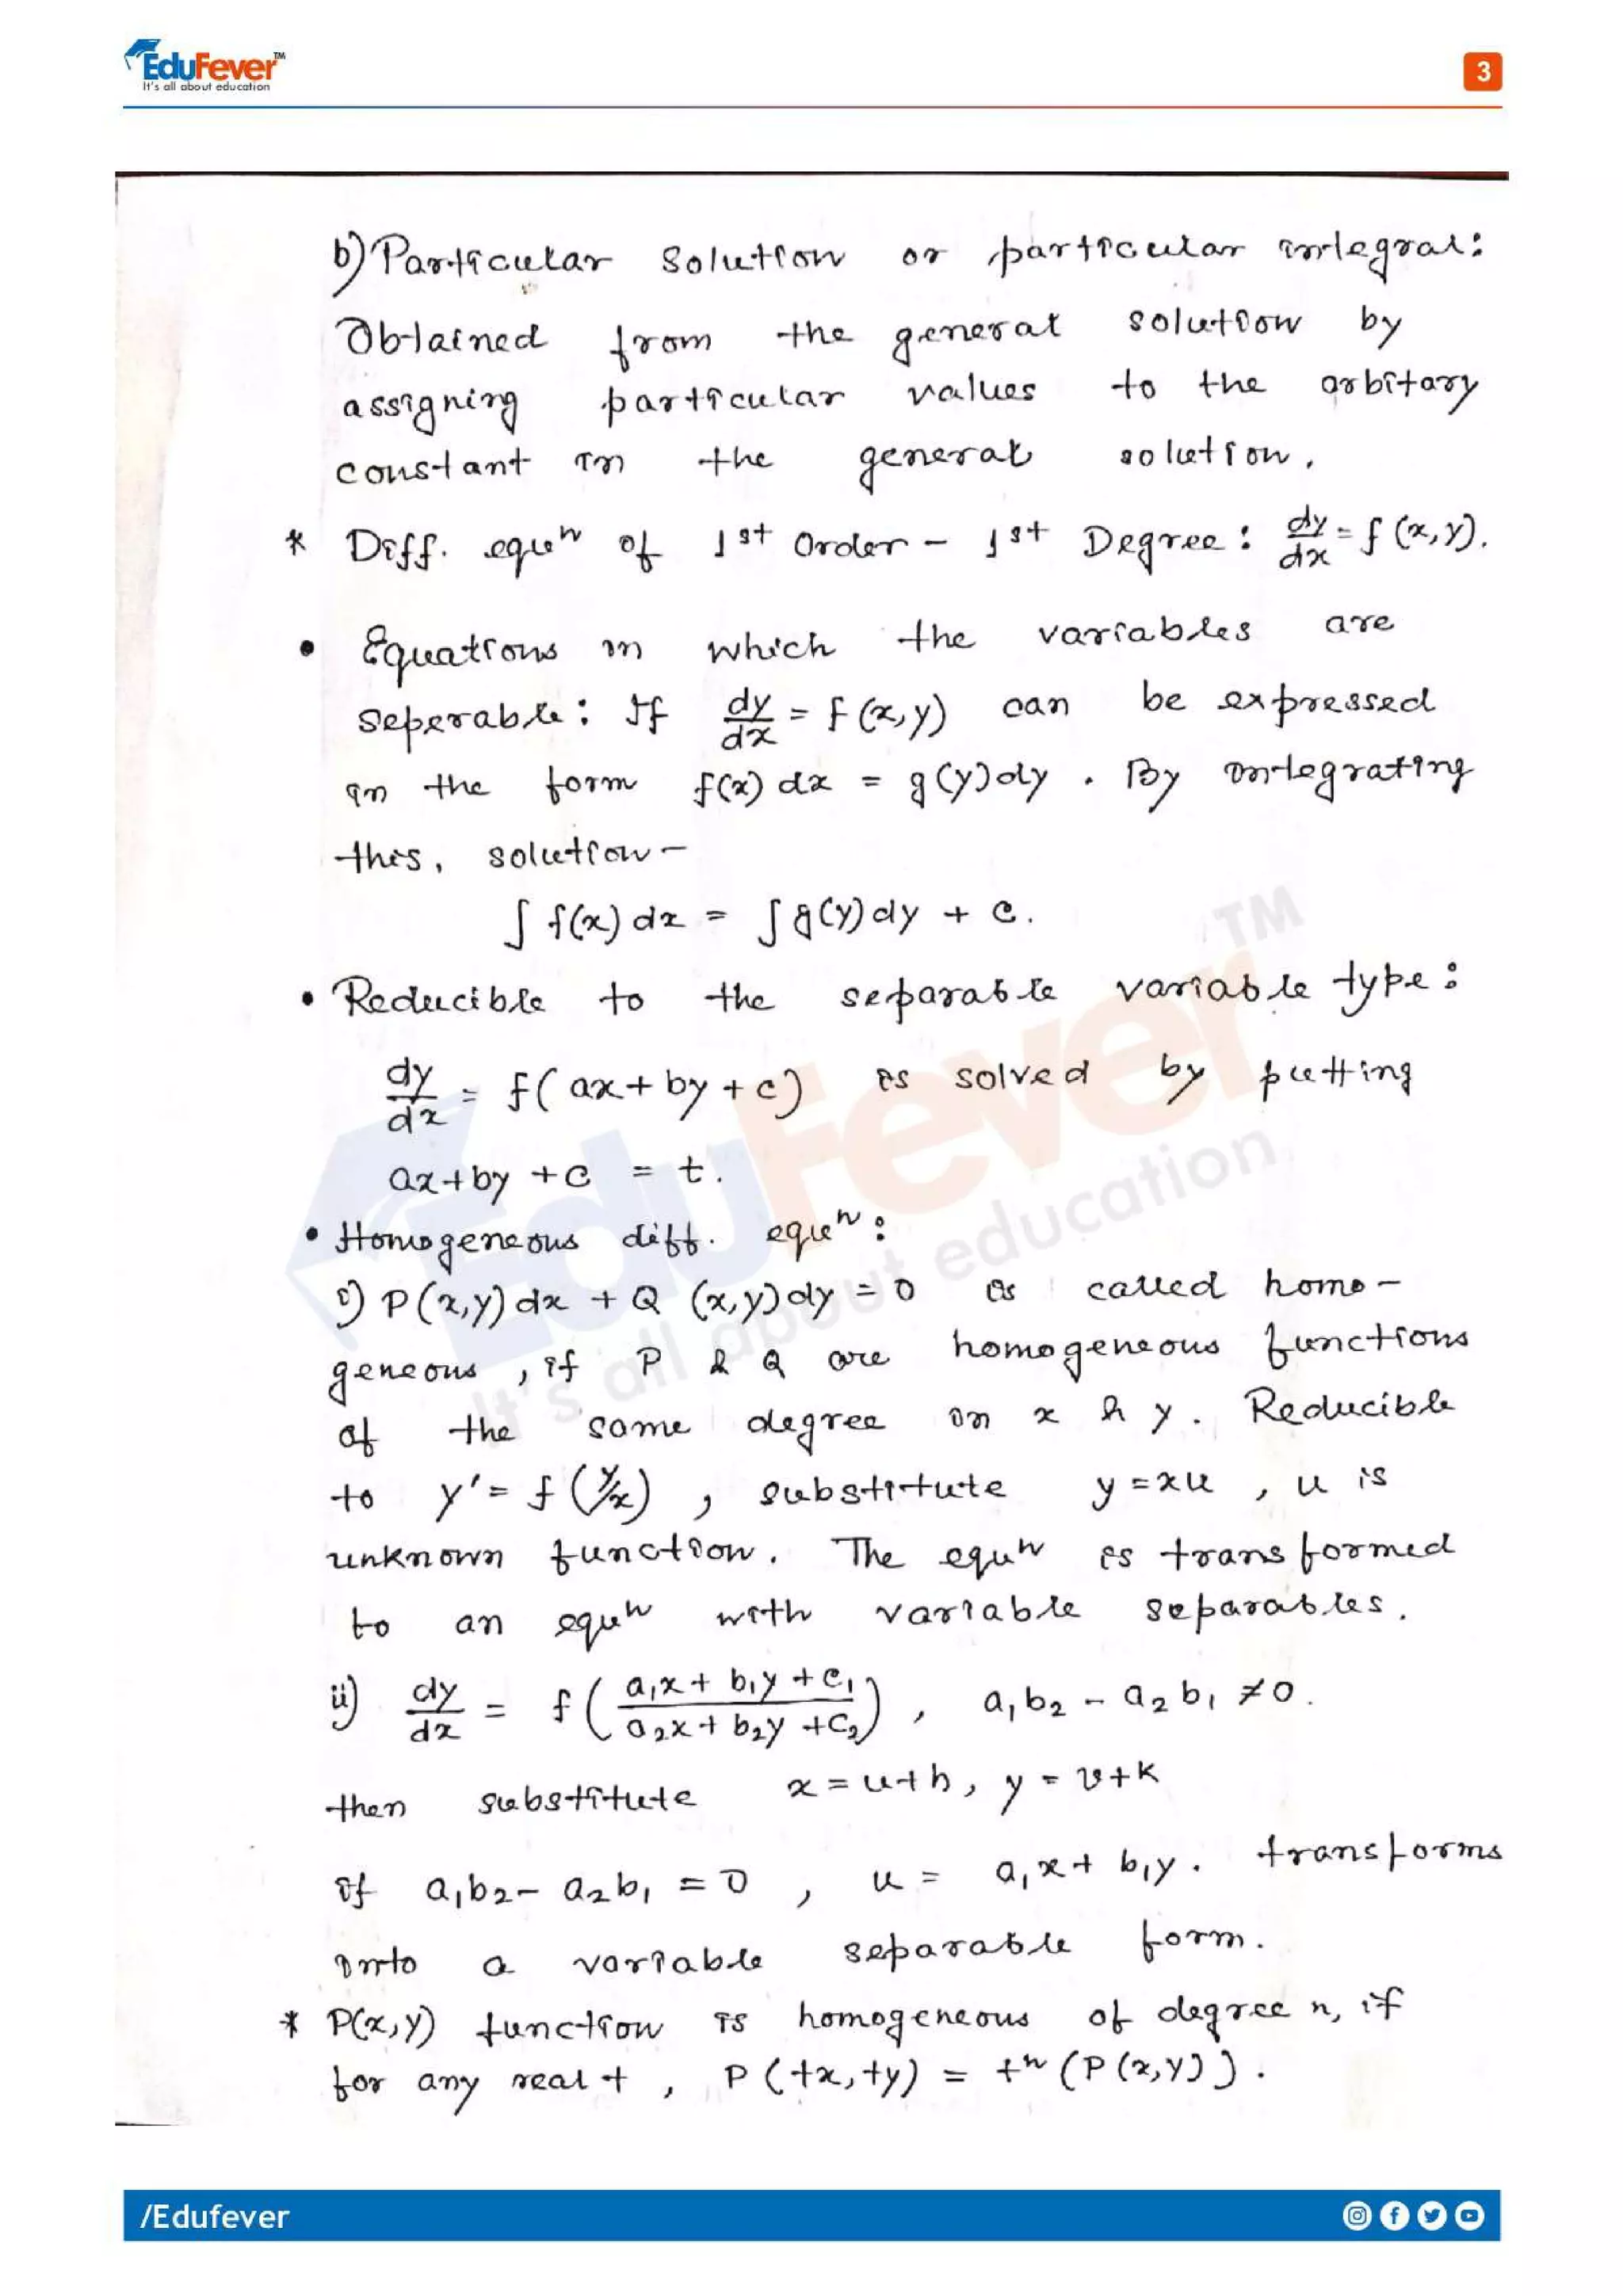 EduFever™
It's all about education
3
b) Particular Solution or particular integral:
Obtained from the general solution by
assigning particular values to the arbitary
constant in the general solution.
* Diff. equⁿ of 1st Order – 1st Degree : dy/dx = f (x,y).
• Equations in which the variables are
seperable : If dy/dx = f (x,y) can be expressed
in the form f(x) dx = g(y)dy . By integrating
this, solution –
∫ f(x) dx = ∫ g(y) dy + c.
• Reducible to the separable variable type :
dy/dx = f( ax + by + c) is solved by putting
ax+by +c = t.
• Homogeneous diff. equⁿ :
i) P(x,y) dx + Q (x,y) dy = 0 is called homo –
geneous , if P & Q are homogeneous functions
of the same degree in x & y . Reducible
to y' = f (y/x) , substitute y = xu , u is
unknown function . The equⁿ is transformed
to an equⁿ with variable separables .
ii) dy/dx = f ( (a₁x + b₁y + c₁)/(a₂x + b₂y + c₂) ) , a₁b₂ – a₂b₁ ≠ 0 .
then substitute x = u+h , y = v+k
If a₁b₂ – a₂b₁ = 0 , u = a₁x + b₁y . transforms
into a variable separable form .
* P(x,y) function is homogeneous of degree n, if
for any real t , P (tx, ty) = tⁿ (P (x,y)) .
TM
EduFever
It's all about education
/Edufever